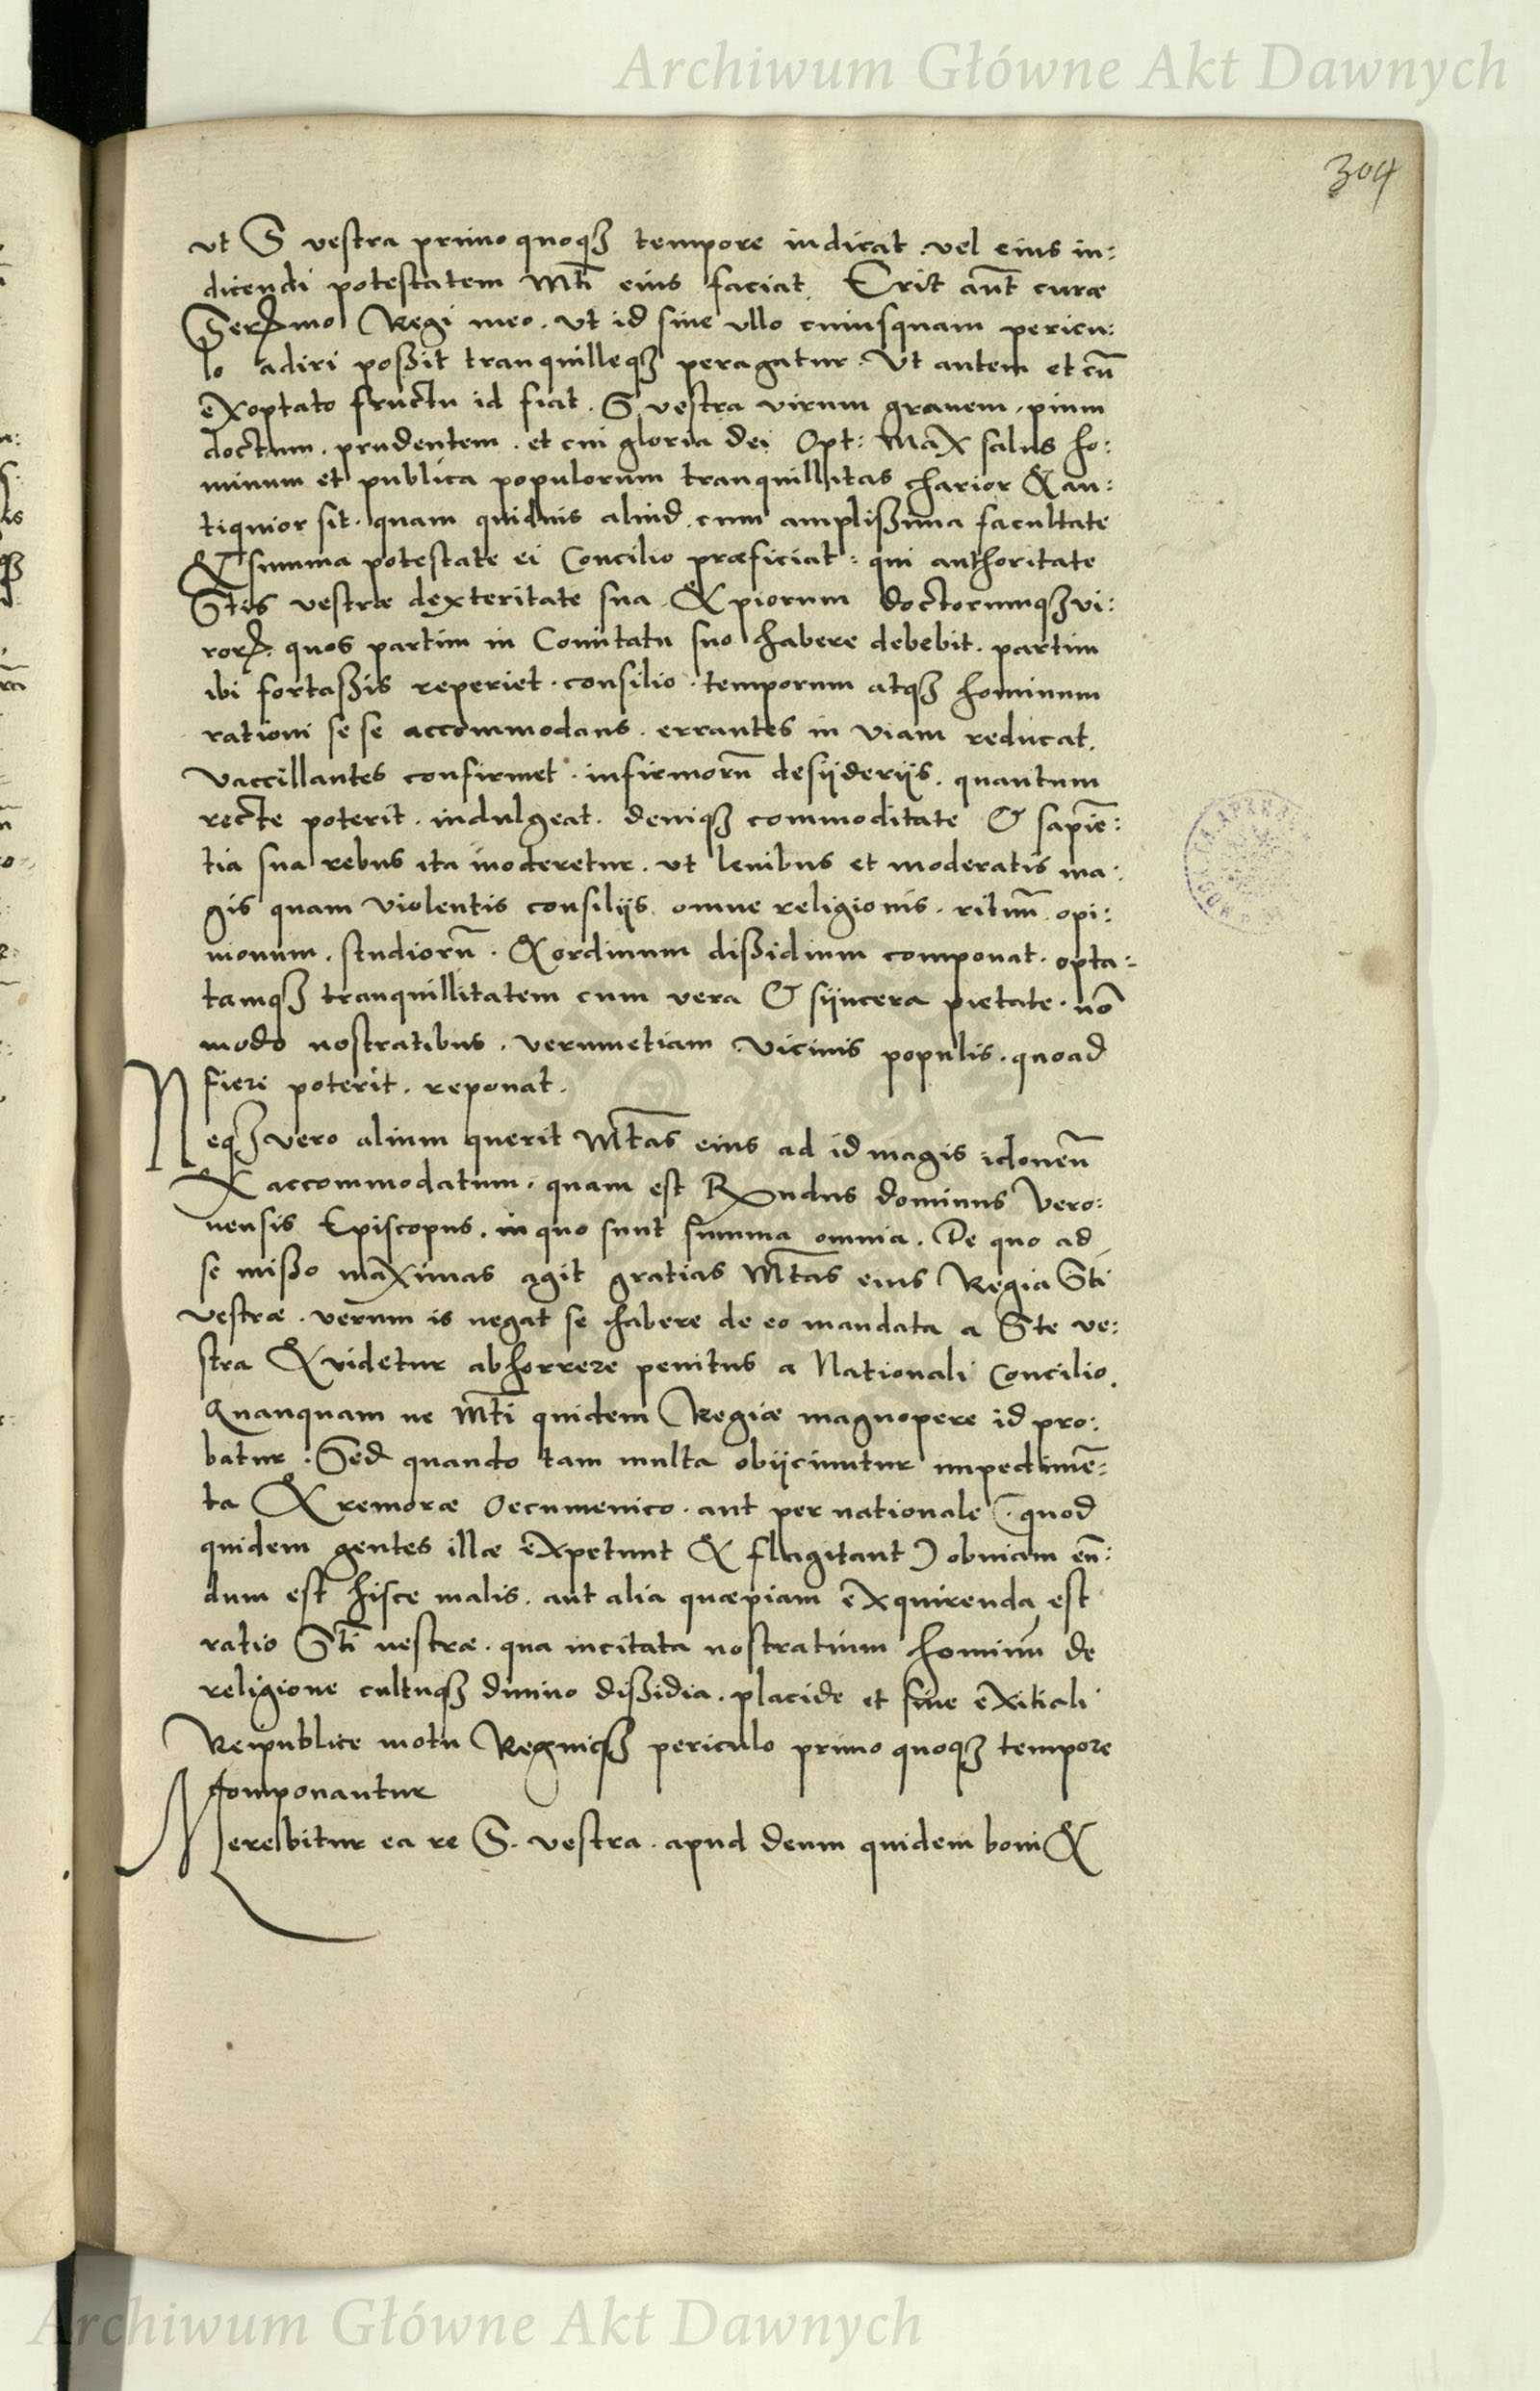 Archiwum Główne Akt Dawnych
304
ut S vestra primo quoqꝫ tempore indicat. vel eius in:
dicendi potestatem Mti̅ eius faciat. Erit au̅t curæ
Serꝫmo Regi meo. ut id sine ullo cuiusquam pericu:
lo adiri poßit tranquilleqꝫ peragatur. Ut autem et cu̅
exoptato fructu id fiat. S. vestra virum gravem, pium
doctum. prudentem. et cui gloria dei Opt: Max salus ho:
minum et publica populorum tranquillitas charior & an:
tiquior sit. quam quidvis aliud. cum amplißima facultate
& summa potestate ei Concilio præficiat: qui authoritate
Stis vestræ dexteritate sua. & piorum doctorumqꝫ vi:
rorꝝ. quos partim in Comitatu suo habere debebit. partim
ibi fortaßis reperiet. consilio. temporum atqꝫ hominum
rationi se se accommodans. errantes in viam reducat.
vaccillantes confirmet. infirmoru̅ desyderijs. quantum
recte poterit. indulgeat. deniqꝫ commoditate & sapie̅:
tia sua rebus ita moderetur. ut lenibus et moderatis ma:
gis quam violentis consilijs omne religionis. rituu̅. opi:
nionum. studioru̅. & ordinum dißidium componat. opta:
tamqꝫ tranquillitatem cum vera & syncera pietate. no̅
modo nostratibus. verumetiam vicinis populis. quoad
fieri poterit. reponat.
Neqꝫ vero alium querit Mtas eius ad id magis idoneu̅
& accommodatum. quam est Rꝫndus dominus Vero:
nensis Episcopus. in quo sunt summa omnia. De quo ad
se mißo maximas agit gratias Mtas eius Regia Sti
vestræ. verum is negat se habere de eo mandata a Ste ve:
stra & videtur abhorrere penitus a Nationali Concilio.
Quanquam ne Mti̅ quidem Regiæ magnopere id pro:
batur. Sed quando tam multa obijciuntur impedime̅:
ta & remoræ Oecumenico. aut per nationale (. quod
quidem gentes illæ expetunt & flagitant) obviam eu̅:
dum est hisce malis. aut alia quæpiam exquirenda est
ratio Sti̅ vestræ. qua incitata nostratium hominu̅ de
religione cultuqꝫ divino dißidia. placide et sine exitiali
Reipublice motu Regniqꝫ periculo primo quoqꝫ tempore
componantur
Merebitur ea re S. vestra. apud deum quidem boni &
Archiwum Główne Akt Dawnych